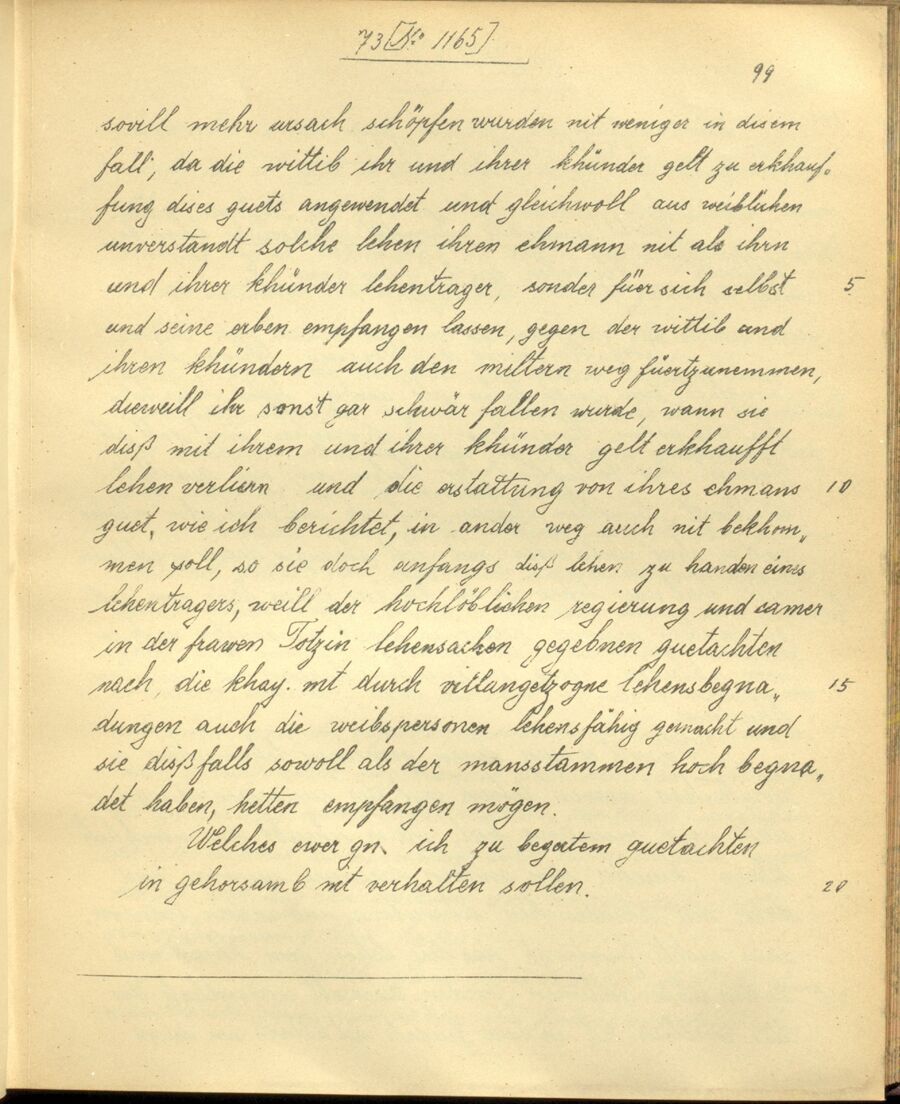 73 [No 1165]
99
sovill mehr ursach schöpfen wurden nit weniger in disem
fall, da die wittib ihr und ihrer khünder gelt zu erkhauf„
fung dises guets angewendet und gleichwoll aus weiblichen
unverstandt solche lehen ihren ehmann nit als ihrn
und ihrer khünder lehentrager, sonder füer sich selbst 5
und seine erben empfangen lassen, gegen der wittib und
ihren khündern auch den miltern weg füertzunemmen,
dieweill ihr sonst gar schwär fallen wurde, wann sie
diß mit ihrem und ihrer khünder gelt erkhaufft
lehen verliern und die erstattung von ihres ehmans 10
guet, wie ich berichtet, in ander weg auch nit bekhom„
men soll, so sie doch anfangs diß lehen zu handen eines
lehentragers, weill der hochlöblichen regierung und camer
in der frawen Totzin lehensachen gegebnen guetachten
nach, die khay. mt durch villangetzogne lehensbegna„ 15
dungen auch die weibspersonen lehensfähig gemacht und
sie dißfalls sowoll als der mansstammen hoch begna„
det haben, hetten empfangen mögen.
Welches ewer gn. ich zu begertem guetachten
in gehorsamb nit verhalten sollen. 20